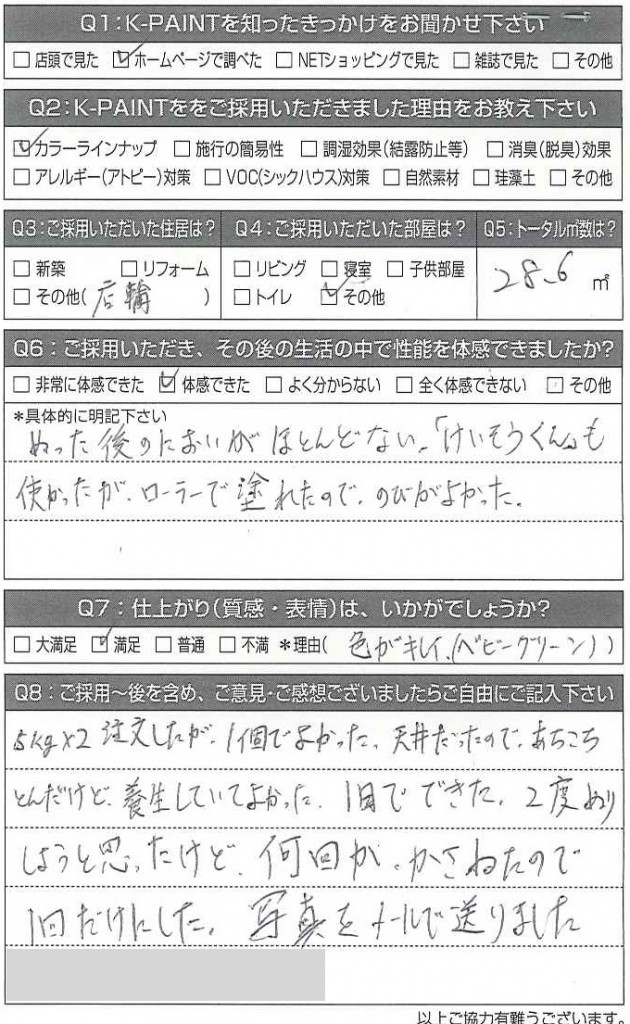 Q1:K-PAINTを知ったきっかけをお聞かせ下さい
□店頭で見た ☑ホームページで調べた □NETショッピングで見た □雑誌で見た □その他
Q2:K-PAINTををご採用いただきました理由をお教え下さい
☑カラーラインナップ □施行の簡易性 □調湿効果(結露防止等) □消臭(脱臭)効果
□アレルギー(アトピー)対策 □VOC(シックハウス)対策 □自然素材 □珪藻土 □その他
Q3:ご採用いただいた住居は?
□新築 □リフォーム
□その他(店舗)
Q4:ご採用いただいた部屋は?
□リビング □寝室 □子供部屋
□トイレ ☑その他
Q5:トータル㎡数は?
28.6 ㎡
Q6:ご採用いただき、その後の生活の中で性能を体感できましたか?
□非常に体感できた ☑体感できた □よく分からない □全く体感できない □その他
*具体的に明記下さい
ぬった後のにおいがほとんどない。「けいそうくん」も
使かったが、ローラーで塗れたので、のびがよかった。
Q7:仕上がり(質感・表情)は、いかがでしょうか?
□大満足 ☑満足 □普通 □不満 *理由(色がキレイ、(ベビーグリーン))
Q8:ご採用~後を含め、ご意見・ご感想ございましたらご自由にご記入下さい
5kg×2 注文したが、1個でよかった、天井だったので、あちこち
とんだけど、養生していてよかった、1日でできた、2度ぬり
しようと思ったけど、何回か、かさねたので
1回だけにした、写真をメールで送りました
以上ご協力有難うございます。